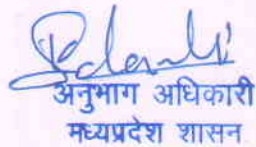 अनुभाग अधिकारी
मध्यप्रदेश शासन